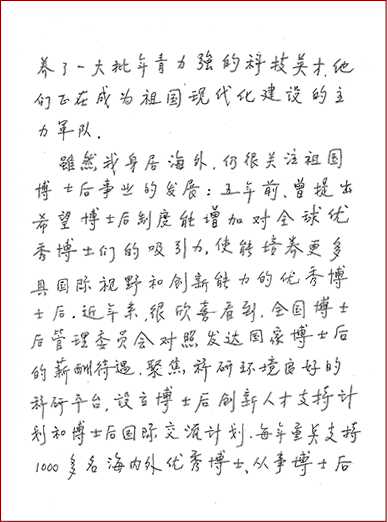 养了一大批年青力强的科技英才,他
们正在成为祖国现代化建设的主
力军队.
虽然我身居海外,仍很关注祖国
博士后事业的发展:五年前、曾提出
希望博士后制度能增加对全球优
秀博士们的吸引力,使能培养更多
具国际视野和创新能力的优秀博
士后.近年来,很欣喜看到,全国博士
后管理委员会对照发达国家博士后
的薪酬待遇.聚焦科研环境良好的
科研平台,设立博士后创新人才支持计
划和博士后国际交流计划.每年重点支持
1000多名海内外优秀博士、从事博士后